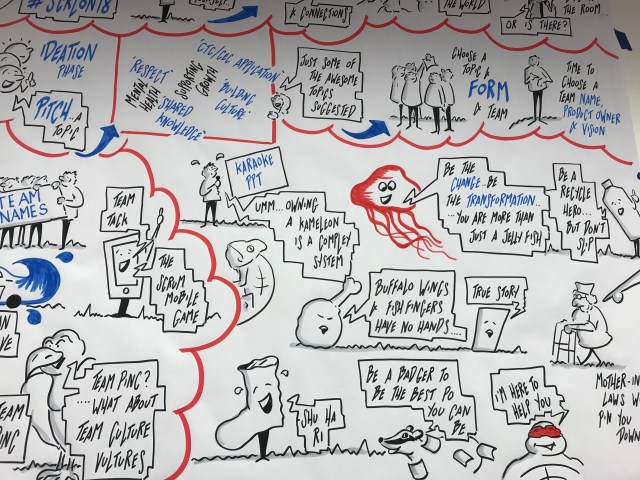 #SCRLON18
& CONNECTIONS
THE WORLD
OR IS THERE?
THE ROOM
IDEATION
PHASE
PITCH.. A
TOPIC
"RESPECT"
MENTAL
HEALTH
"SHARED
KNOWLEDGE"
SUPPORTING
GROWTH
"BUILDING
CULTURE"
JUST SOME OF
THE AWESOME
TOPICS
SUGGESTED
CHOOSE A
TOPIC &
FORM
A TEAM
TIME TO
CHOOSE A
TEAM NAME,
PRODUCT OWNER
& VISION
TEAM
NAMES
TEAM
TACK
THE
SCRUM
MOBILE
GAME
KARAOKE
PPT
UMM... OWNING
A KAMELEON
IS A COMPLEY
SYSTEM
BE THE
CHANGE.. BE
THE TRANSFORMATION...
...YOU ARE MORE THAN
JUST A JELLY FISH
BE A
RECYCLE
HERO....
BUT DON'T
SLIP
BUFFALO WINGS
& FISHFINGERS
HAVE NO HANDS....
TRUE STORY
TEAM PING?
.....WHAT ABOUT
TEAM CULTURE
VULTURES
TEAM
PING
SHU HA
RI
BE A BADGER TO
BE THE BEST PO
YOU CAN
BE
I'M HERE TO
HELP YOU
MOTHER-IN
LAWS W
PIN YOU
DOWN